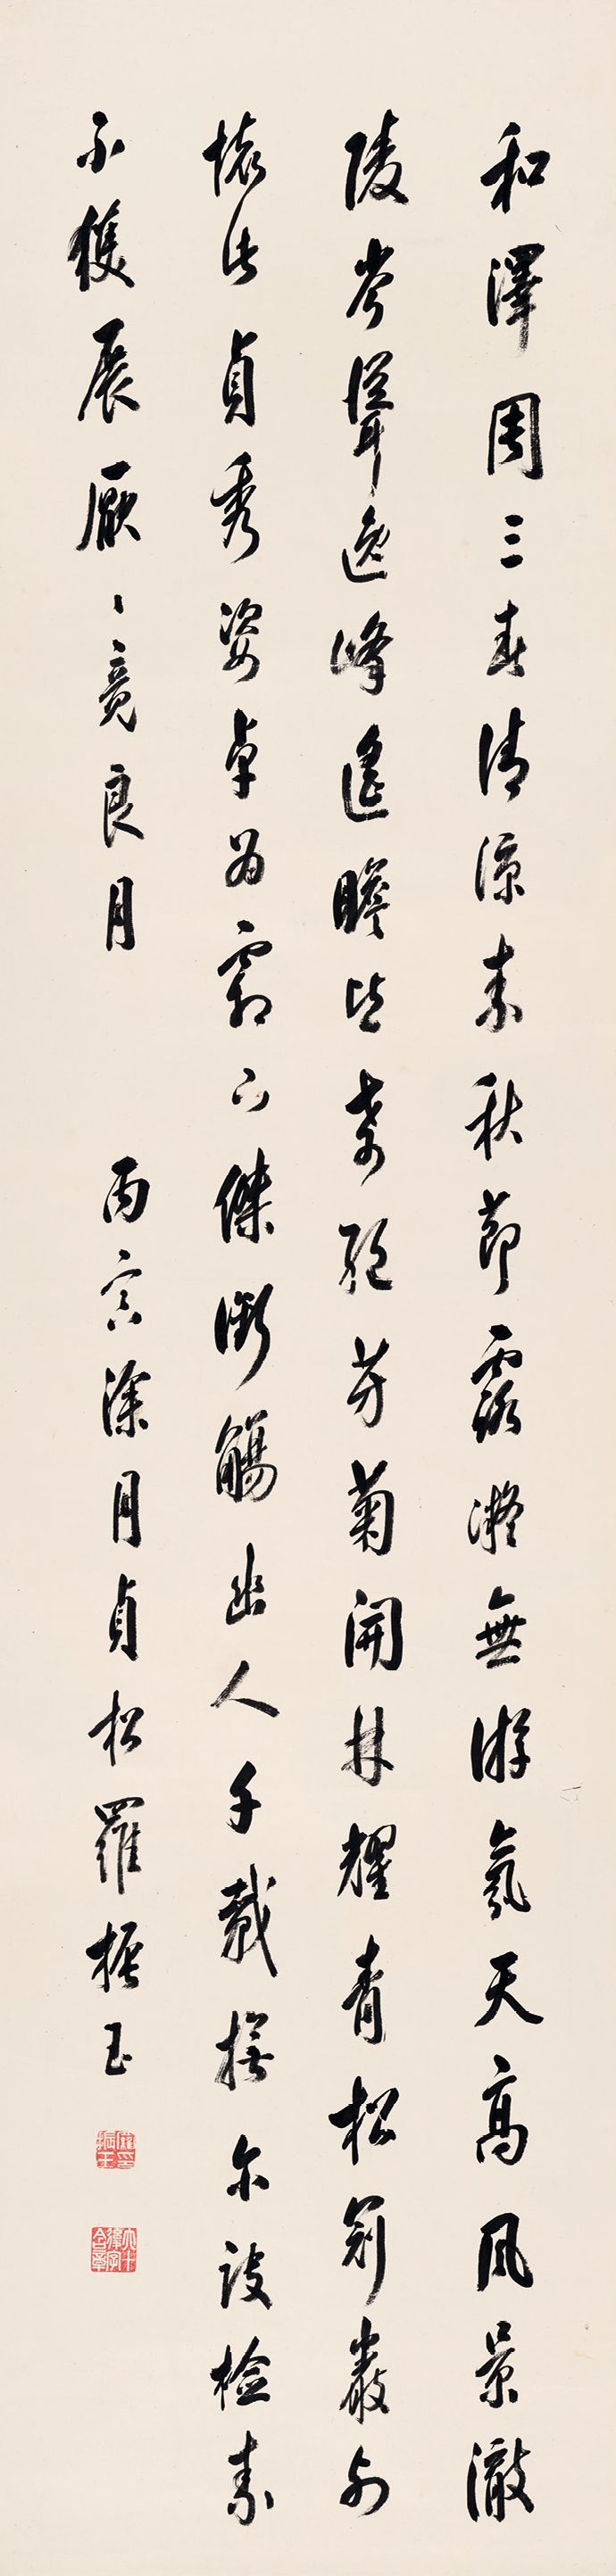 和澤周三春清涼素秋節露凝無游氛天高風景澈
陵岑聳逸峰遙瞻皆奇絕芳菊開林耀青松冠巖列
懷此貞秀姿卓為霜下傑銜觴幽人千載撫尔訣檢素
不獲展厭〻竟良月
丙寅涂月貞松羅振玉